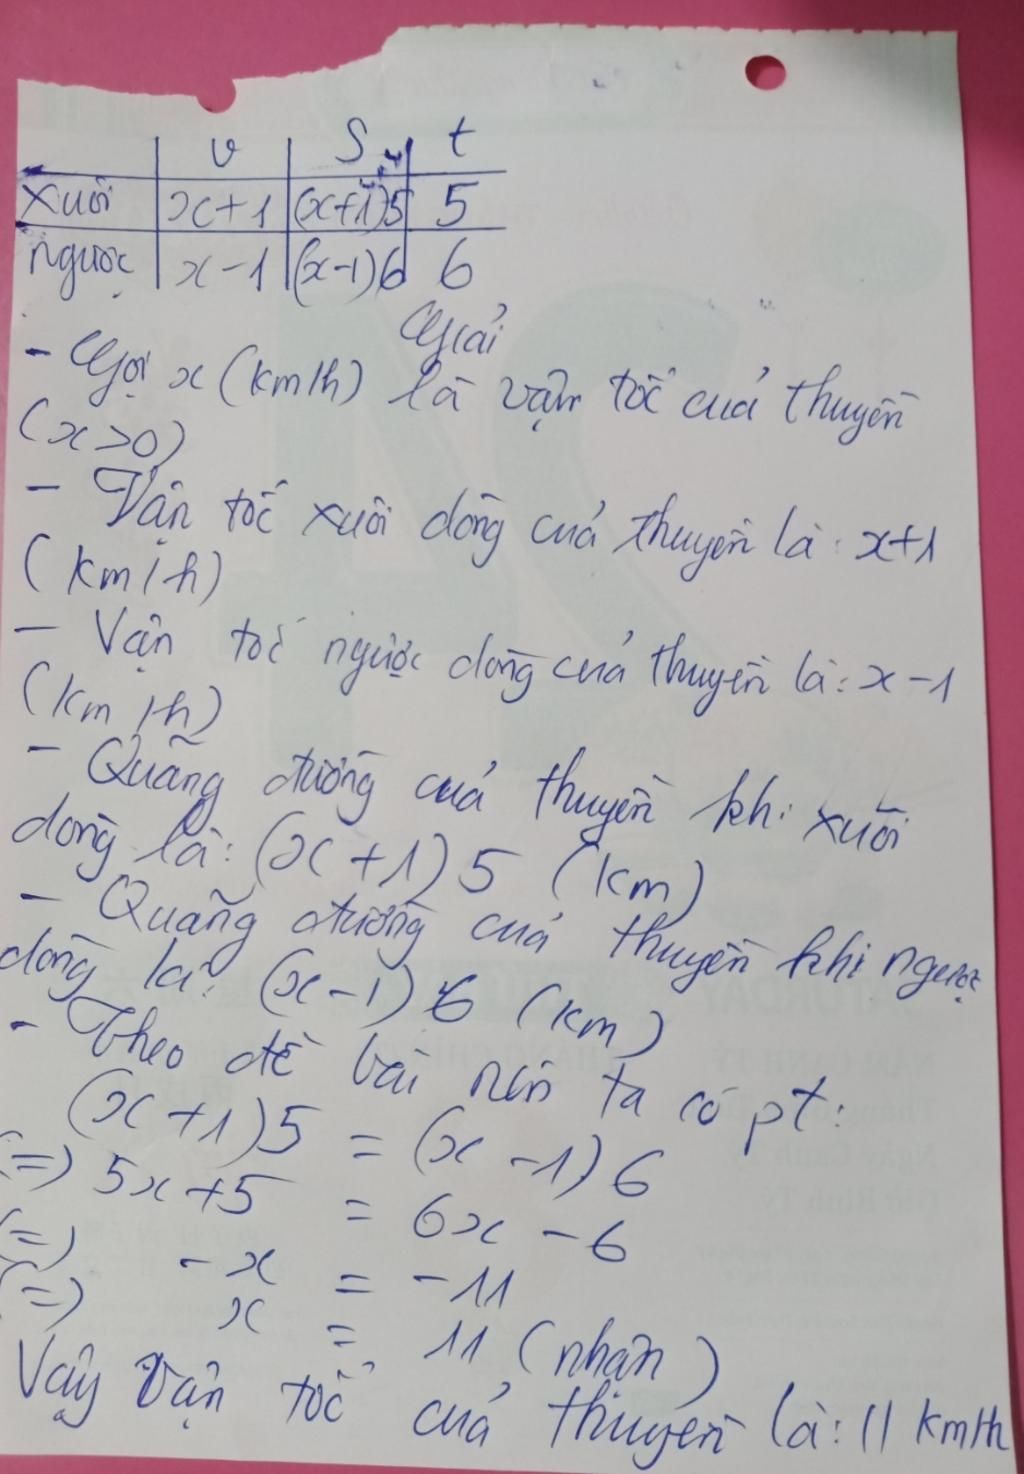 v S t
xuôi x+1 (x+1)5 5
ngược x-1 (x-1)6 6
Giải
- Gọi x (km/h) là vận tốc của thuyền
(x>0)
- Vận tốc xuôi dòng của thuyền là: x+1
(km/h)
- Vận tốc ngược dòng của thuyền là: x-1
(km/h)
- Quãng đường của thuyền khi xuôi
dòng là: (x+1)5 (km)
- Quãng đường của thuyền khi ngược
dòng là: (x-1)6 (km)
- Theo đề bài nên ta có pt:
(x+1)5 = (x-1)6
(=) 5x+5 = 6x-6
(=) -x = -11
(=) x = 11 (nhận)
Vậy vận tốc của thuyền là: 11 km/h